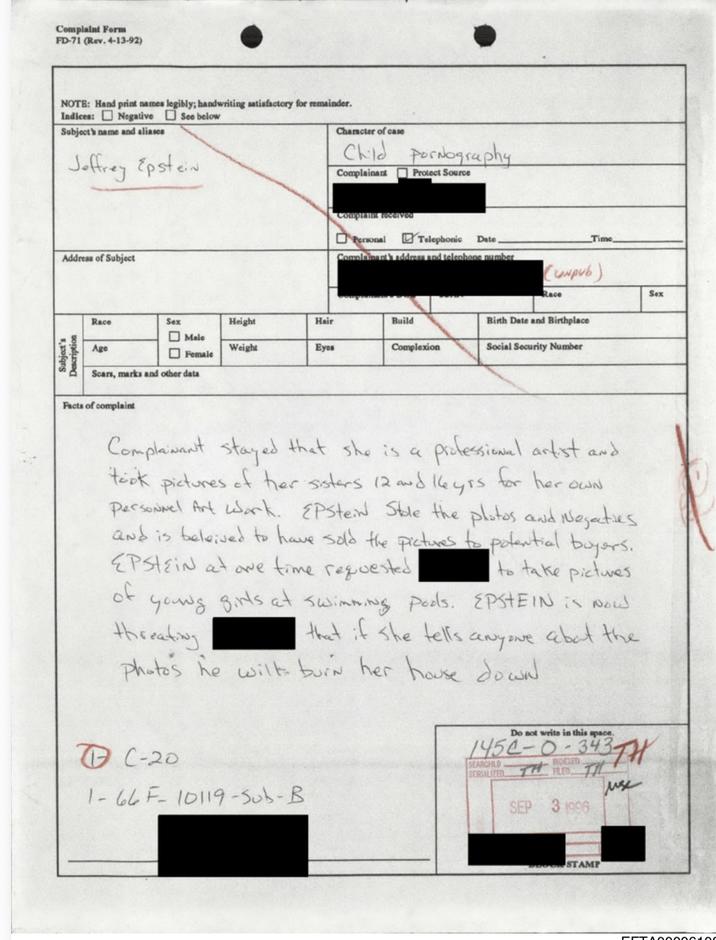 Complaint Form
FD-71 (Rev. 4-13-92)
NOTE: Hand print names legibly; handwriting satisfactory for remainder.
Indices: Negative See below
Subject's name and aliases
Jeffrey Epstein
Character of case
Child pornography
Complainant Protect Source
Complaint received
Personal Telephonic Date Time
Address of Subject
Complainant's address and telephone number
(unpub)
Race Sex
Subject's Description
Race Sex Height Hair Build Birth Date and Birthplace
Male
Age Female Weight Eyes Complexion Social Security Number
Scars, marks and other data
Facts of complaint
Complainant stayed that she is a professional artist and
took pictures of her sisters 12 and 16 yrs for her own
personnel Art work. EPStein Stole the photos and Negatives
and is beleived to have sold the pictures to potential buyers.
EPSTEIN at one time requested to take pictures
of young girls at swimming pools. EPSTEIN is now
threating that if she tells anyone about the
photos he will burn her house down
Do not write in this space.
145C-0-343 TH
SEARCHED INDEXED
SERIALIZED TH FILED TH
SEP 3 1996
1- C-20
1-66F-10119-Sub-B
STAMP